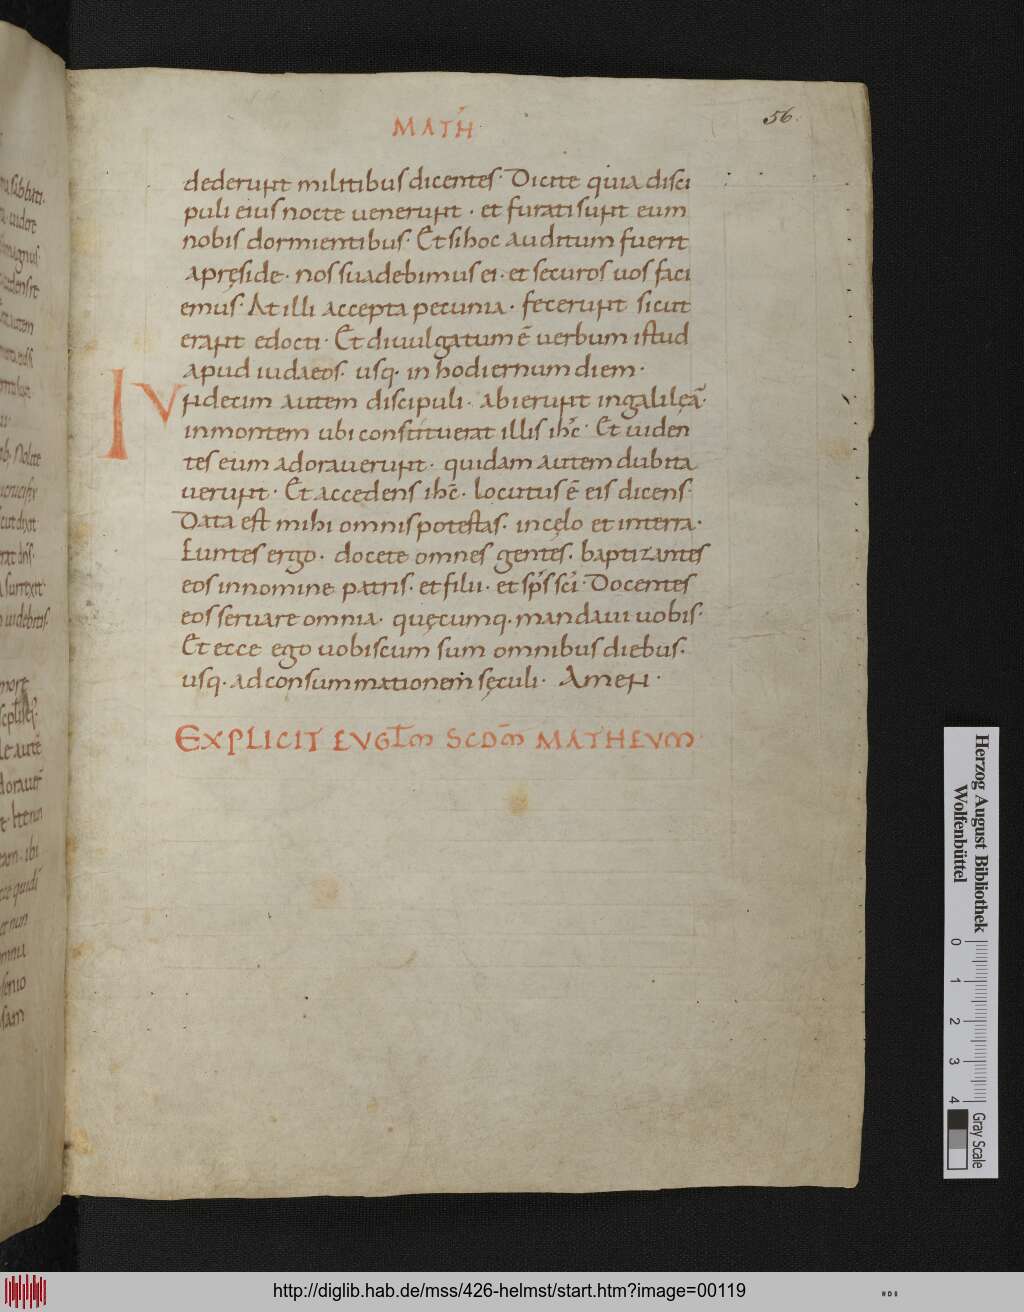 MATH
56.
dederunt militibus dicentes· Dicite quia disci
puli eius nocte uenerunt · et furati sunt eum
nobis dormientibus· Et si hoc auditum fuerit
apręside · nos suadebimus ei · et securos uos faci
emus· At illi accepta pecunia · fecerunt sicut
erant edocti · Et diuulgatum ē uerbum istud
apud iudaeos· usq· in hodiernum diem ·
IVndecim autem discipuli · abierunt in galileã·
in montem ubi constituerat illis ihc̄· Et uiden
tes eum adorauerunt · quidam autem dubita
uerunt · Et accedens ihc̄· locutus ē eis dicens·
Data est mihi omnis potestas· in cęlo et in terra·
Euntes ergo · docete omnes gentes· baptizantes
eos in nomine patris· et filii · et sp̄s sc̄i· Docentes
eos seruare omnia· quęcumq· mandaui uobis·
Et ecce ego uobiscum sum omnibus diebus·
usq· ad consummationem sęculi· Amen ·
EXPLICIT EVGL̄M SCDM̄ MATHEVM
Herzog August Bibliothek
Wolfenbüttel
0 1 2 3 4
Gray Scale
http://diglib.hab.de/mss/426-helmst/start.htm?image=00119